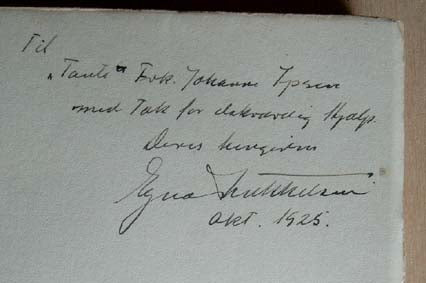 Til
„Tante" Frk. Johanne Ipsen
med Tak for elskværdig Hjælp.
Deres hengivne
Ejnar Mikkelsen
Okt. 1925.